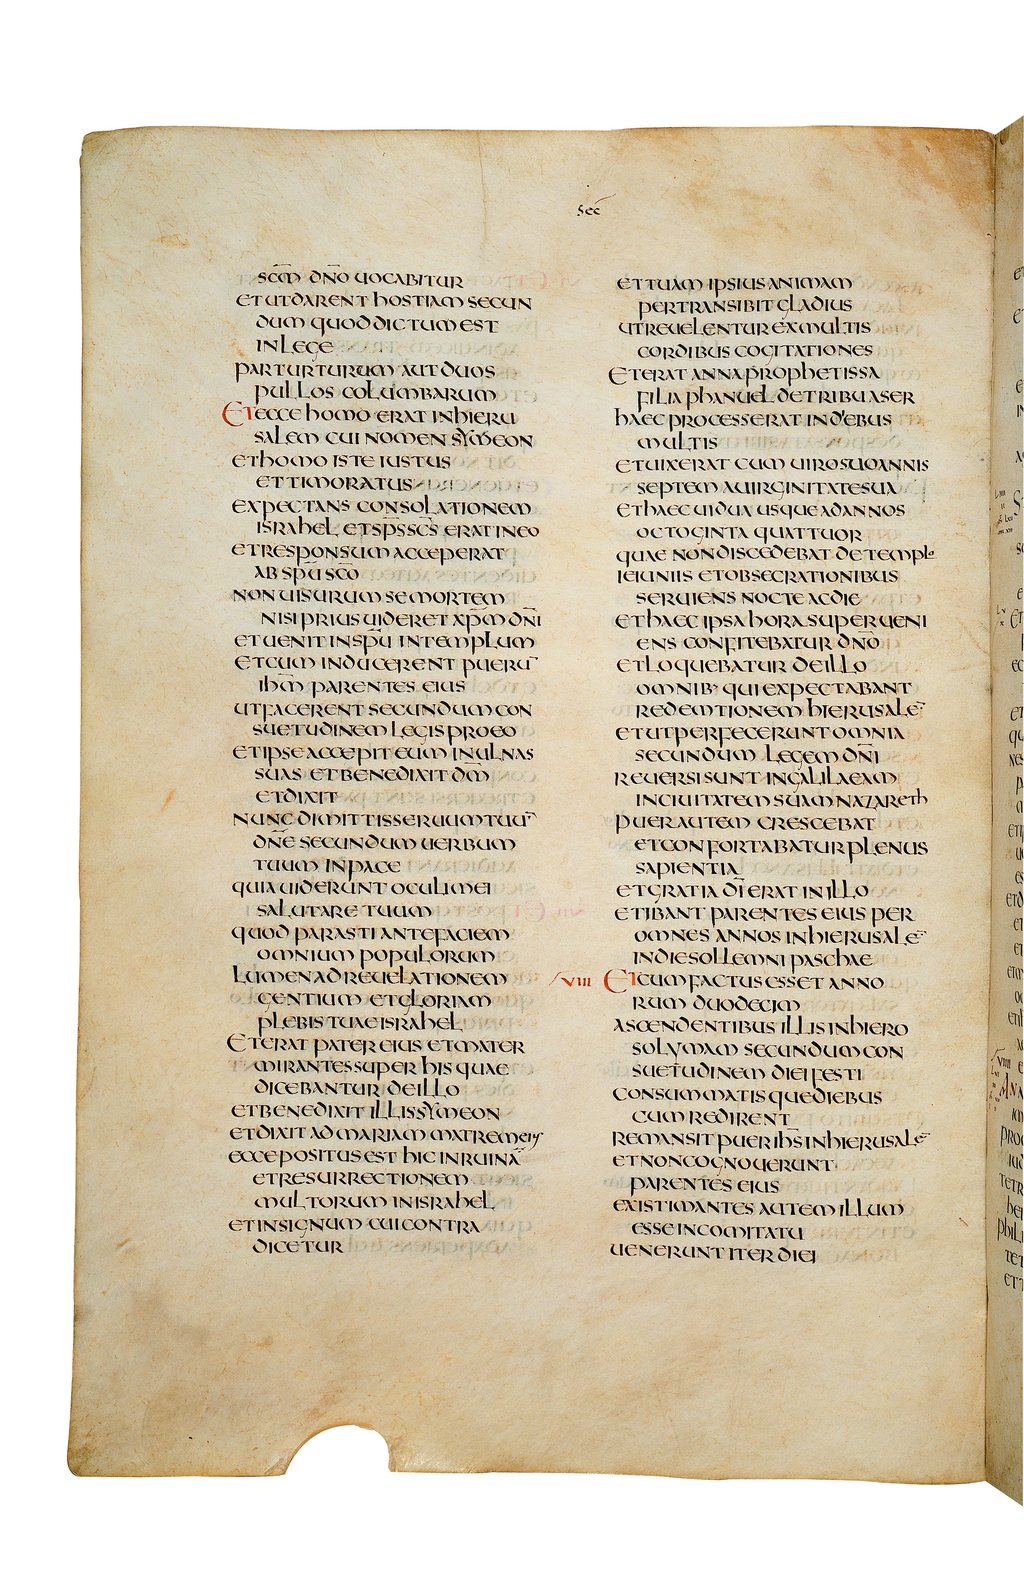 sec̄
sc̄m dn̄o uocabitur
et ut darent hostiam secun
dum quod dictum est
in lege
par turturum aut duos
pullos columbarum
Et ecce homo erat in hieru
salem cui nomen symeon
et homo iste iustus
et timoratus
expectans consolationem
israhel et sp̄s sc̄s erat in eo
et responsum acceperat
ab sp̄u sc̄o
non uisurum se mortem
nisi prius uideret xp̄m dn̄i
et uenit in sp̄u in templum
et cum inducerent pueru̅
ih̄m parentes eius
ut facerent secundum con
suetudinem legis pro eo
et ipse accepit eum in ulnas
suas et benedixit dm̄
et dixit
nunc dimittis seruum tuu̅
dn̄e secundum uerbum
tuum in pace
quia uiderunt oculi mei
salutare tuum
quod parasti ante faciem
omnium populorum
lumen ad reuelationem
gentium et gloriam
plebis tuae israhel
Et erat pater eius et mater
mirantes super his quae
dicebantur de illo
et benedixit illis symeon
et dixit ad mariam matrem eius
ecce positus est hic in ruina̅
et resurrectionem
multorum in israhel
et in signum cui contra
dicetur
et tuam ipsius animam
pertransibit gladius
ut reuelentur ex multis
cordibus cogitationes
Et erat anna prophetissa
filia phanuel de tribu aser
haec processerat in diebus
multis
et uixerat cum uiro suo annis
septem a uirginitate sua
et haec uidua usque ad annos
octoginta quattuor
quae non discedebat de templo
ieiuniis et obsecrationibus
seruiens nocte ac die
et haec ipsa hora superueni
ens confitebatur dn̄o
et loquebatur de illo
omnib· qui expectabant
redemtionem hierusale̅
et ut perfecerunt omnia
secundum legem dn̄i
reuersi sunt in galilaeam
in ciuitatem suam nazareth
puer autem crescebat
et confortabatur plenus
sapientia
et gratia dī erat in illo
et ibant parentes eius per
omnes annos in hierusale̅
in die sollemni paschae
VIII Et cum factus esset anno
rum duodecim
ascendentibus illis in hiero
solymam secundum con
suetudinem diei festi
consummatisque diebus
cum redirent
remansit puer ih̄s in hierusale̅
et non cognouerunt
parentes eius
existimantes autem illum
esse in comitatu
uenerunt iter diei